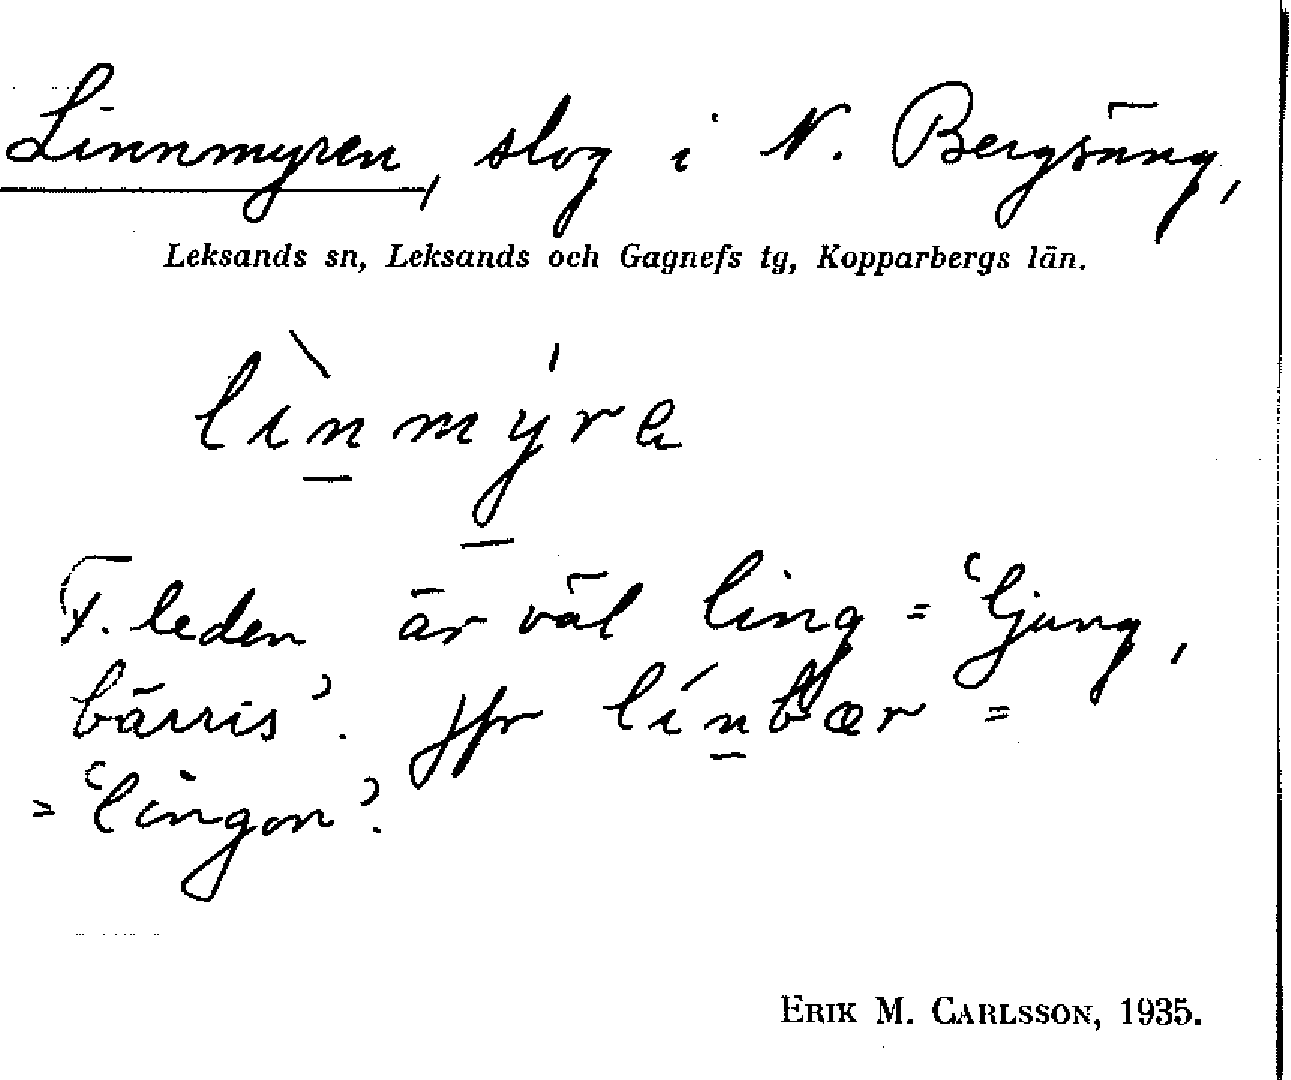 Linnmyren, slog i N. Bergsäng,
Leksands sn, Leksands och Gagnefs tg, Kopparbergs län.
lìn̲mý̲ra
F. leden är väl ling = 'ljung,
bärris'. Jfr lín̲bær =
= 'lingon'.
ERIK M. CARLSSON, 1935.